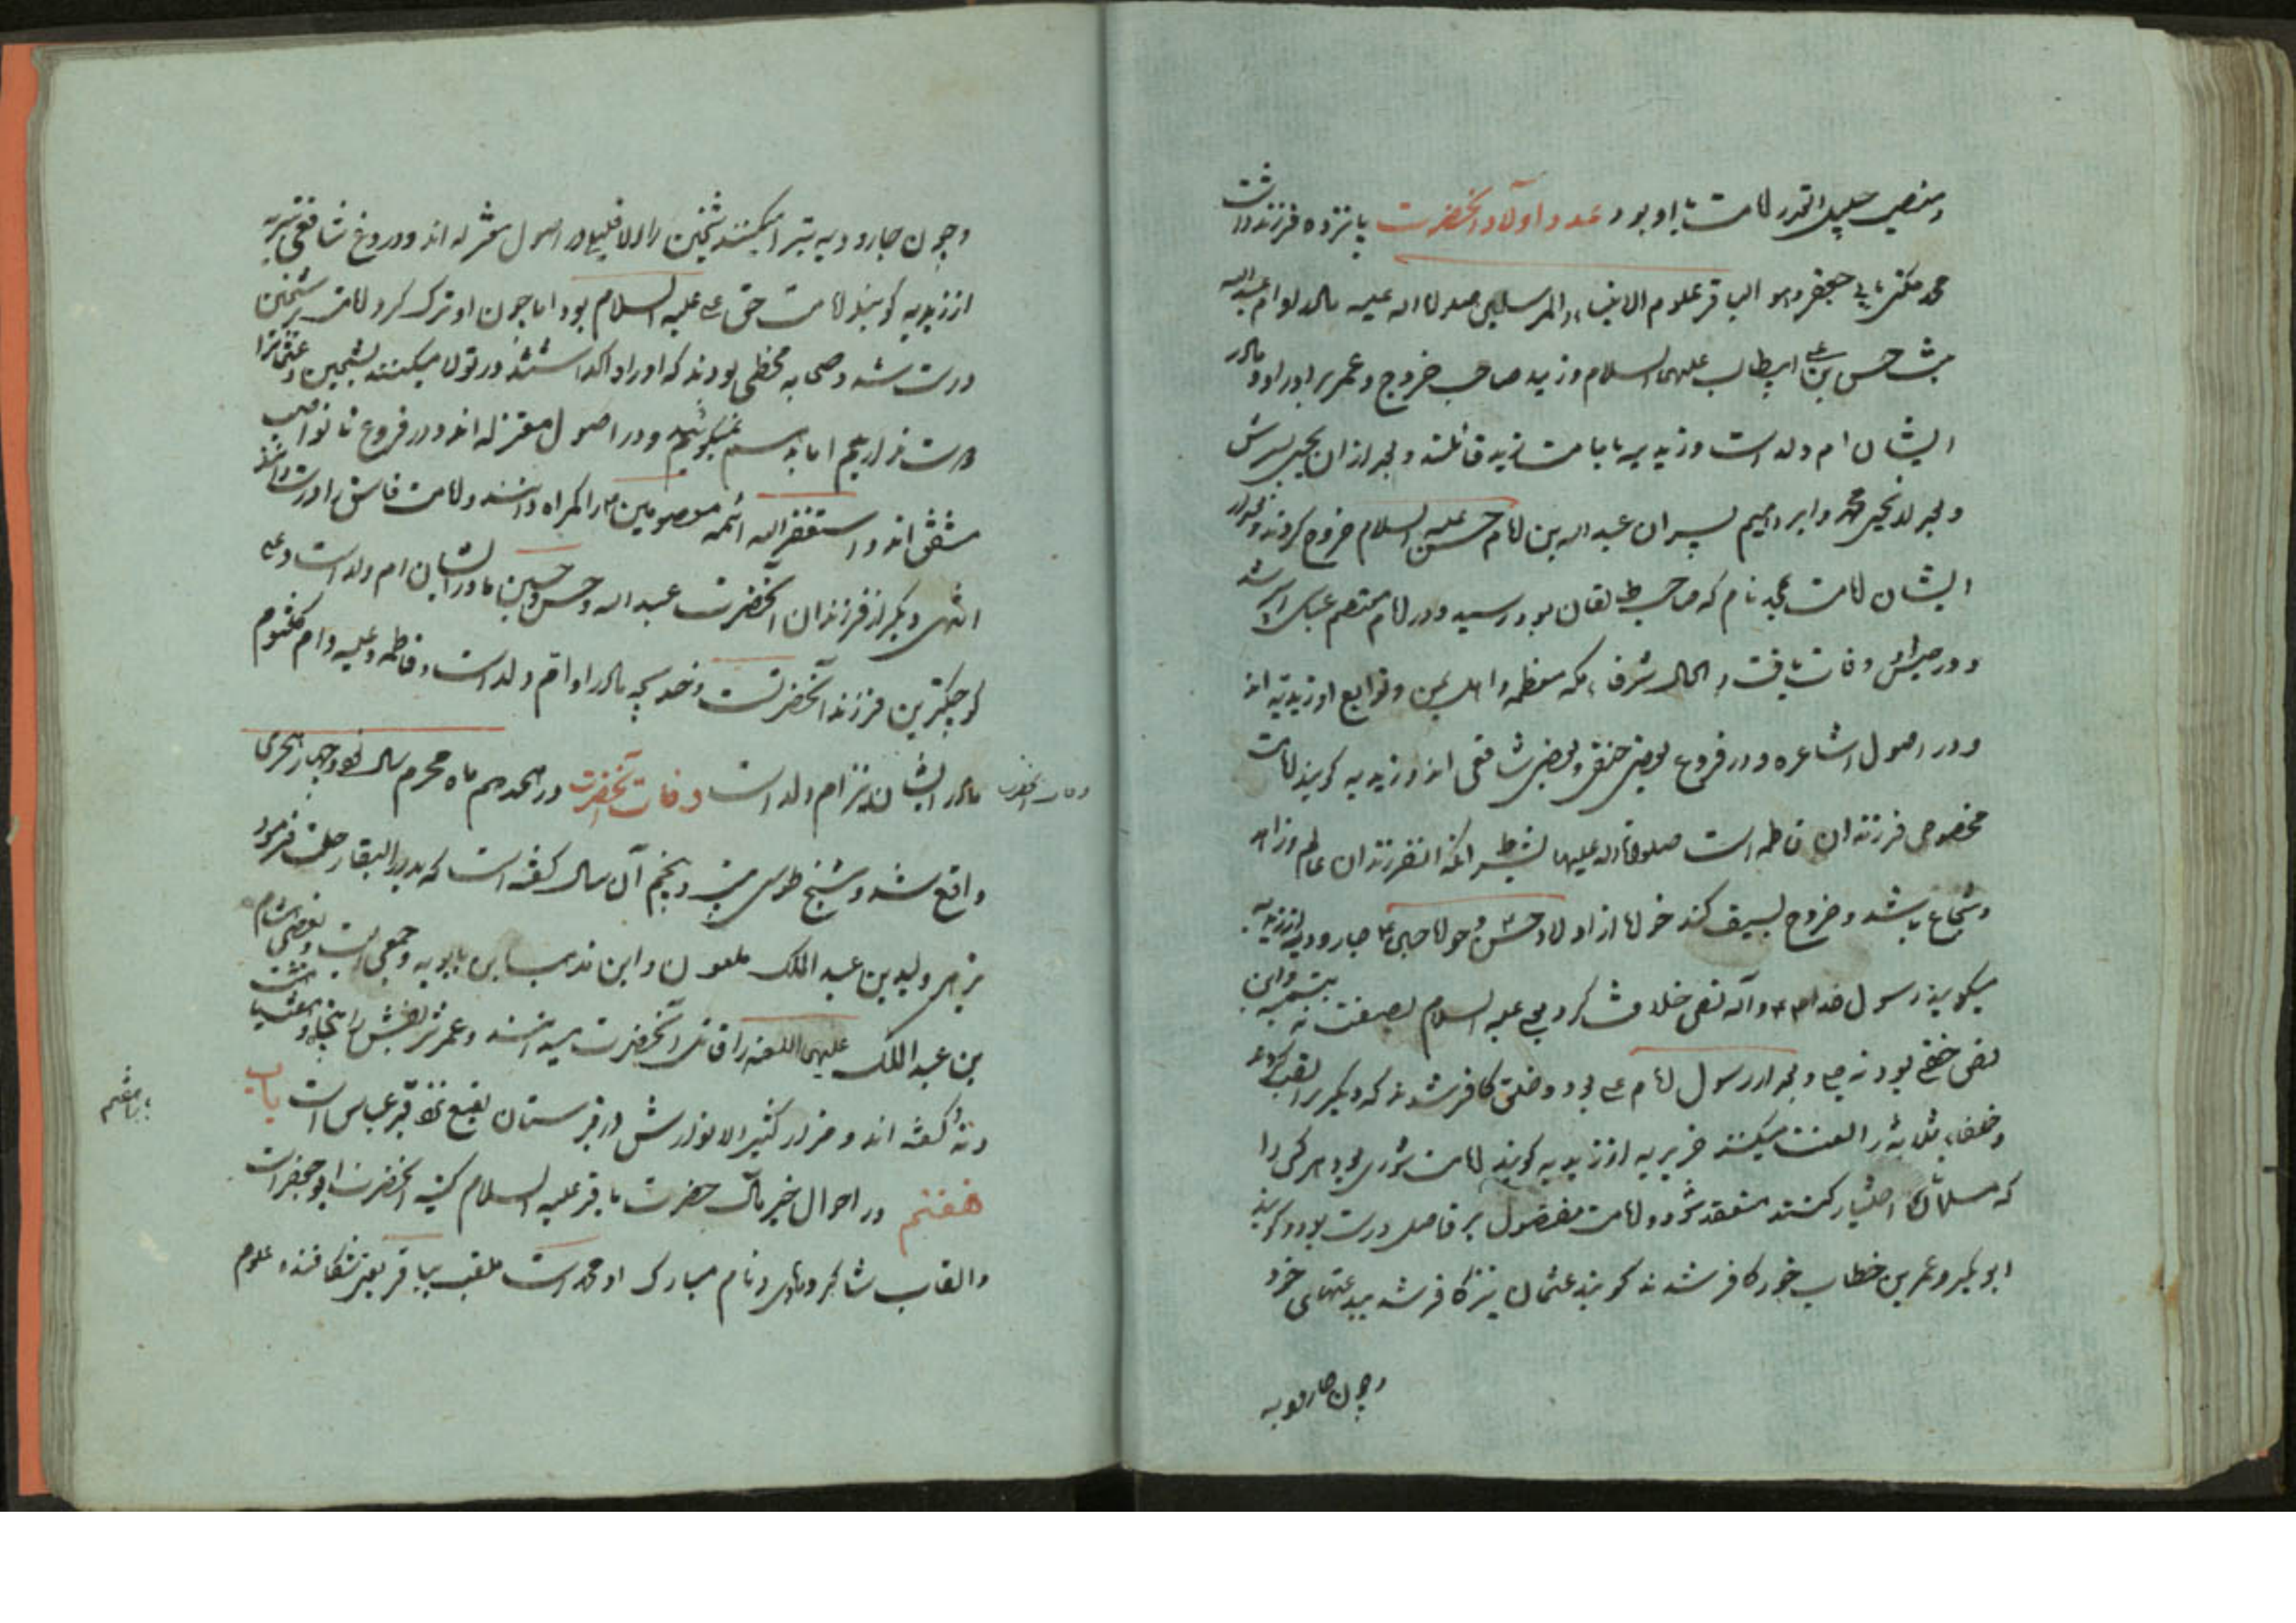 و منصب جلیل القدر امامت با او بود عدد اولاد آنحضرت پانزده فرزند داشت
محمد مکنی بابی جعفر و هو الباقر علوم الانبیاء و المرسلین صلوات الله علیه مادر او ام عبدالله
بنت حسن بن علی ابیطالب علیهم السلام و زید صاحب خروج و عمر برادر او و مادر
ایشان ام ولد است و زیدیه بامامت زید قائلند و بعد از آن یحیی پسرش
و بعد از یحیی محمد و ابراهیم پسران عبدالله بن امام حسن علیه السلام خروج کردند و بعد از
ایشان امامت بمحمد نام که صاحب طالقان بود رسید و در ایام معتصم عباسی اسیر شد
و در حبس او وفات یافت و الحال شرفاء مکه معظمه و اهل یمن و توابع او زیدیه اند
و در اصول اشاعره و در فروع بعضی حنفی و بعضی شافعی اند و زیدیه گویند امامت
مخصوص فرزندان فاطمه است صلوات الله علیها بشرط آنکه آنفرزندان عالم و زاهد
و شجاع باشد و خروج بسیف کند خواه از اولاد حسن و خواه حسین جارودیه از زیدیه
میگویند رسول خدا ص و آله نص خلافت کرد بعلی علیه السلام بصفت نه بتسمیه و این
نص خفی بود نه جلی و بعد از رسول امام علی بود و خلق کافر شدند که دیگری را نصب کردند
و خلفاء ثلاثه را لعنت میکنند جریریه از زیدیه گویند امامت شوری بود هر کس را
که مسلمانان اختیار کنند منعقد شود و امامت مفضول بر فاضل درست بود و گویند
ابو بکر و عمر بن خطاب خود کافر شدند گویند عثمان نیز کافر شد ببدعتهای خود
و چون جارودیه
و چون جارودیه تبرا میکنند شیخین را و در اصول معتزله اند و در فروغ شافعی تبریه
از زیدیه گویند امامت حق علی علیه السلام بود اما چون او ترک کرد امامت شیخین
درست شد و صحابه مخطی بودند که او را واگذاشتند و تولا میکنند بشیخین و عثمان را
اما بد نمیگوئیم و در اصول معتزله اند و در فروع تا نواصب
متفق اند و استغفر الله ائمه معصومین را گمراه دانند و امامت فاسق را درست دانند
انتهی دیگر از فرزندان آنحضرت عبدالله و حسن و حسین مادر ایشان ام ولد است و علی
کوچکترین فرزند آنحضرتست و خدیجه مادر او ام ولد است و فاطمه و علیه و ام کلثوم
مادر ایشان نیز ام ولد است وفات آنحضرت در هجدهم ماه محرم سال نود و چهار هجری
وفات آنحضرت
واقع شد و شیخ طوسی بیست و پنجم آن سال گفته است که بدار البقا رحلت فرمود
بزهر ولید بن عبد الملک ملعون و این مذهب ابن بابویه و جمعی است و بعضی هشام
بن عبد الملک علیهم اللعنه را قاتل آنحضرت میدانند و عمر شریفش را پنجاه و هفت
گفته اند و مزار کثیر الانوارش در قبرستان بقیع نزد قبر عباس است باب
باب هفتم
هفتم در احوال خیر مآل حضرت باقر علیه السلام کنیه آنحضرت ابو جعفر است
و القاب شاکر و هادی و نام مبارک او محمد است ملقب بباقر یعنی شکافنده علوم